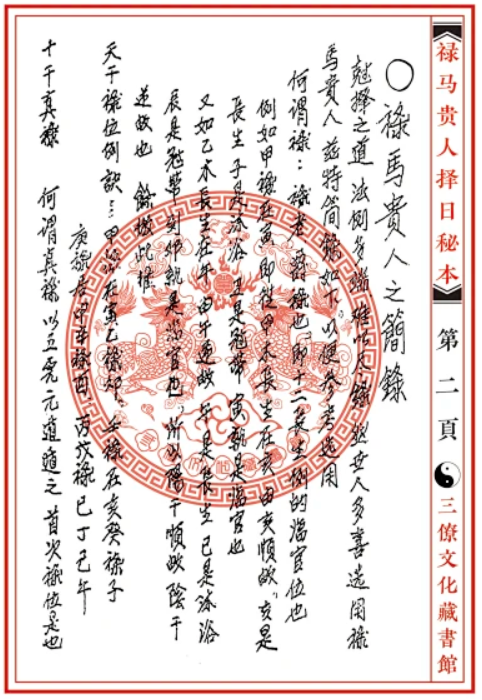 禄马贵人择日秘本
第二頁
三僚文化藏書館
○禄馬貴人之簡錄
馬貴人兹特简錄如下以便参考选用
何谓禄：禄者爵禄也即十二長生例的临官位也
例如甲禄在寅即從甲木長生在亥由亥順数亥是
長生子是沐浴丑是冠帶寅就是临官也
又如乙木長生在午由午逆数午是長生巳是沐浴
辰是冠帶卯就是临官也所以陽干順数陰干
逆数也餘倣此推
天干禄位例訣：甲禄在寅乙禄卯壬禄在亥癸禄子
庚禄居申辛禄酉丙戊禄巳丁己午
十干真禄何谓真禄以五虎元遁遁之首次禄位是也